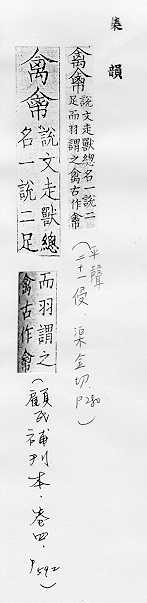 集韻
禽𠌶說文走獸總名一說二
足而羽謂之禽古作𠌶
(平聲
二十一侵．渠金切．
P280)
禽𠌶說文走獸總
名一說二足
而羽謂之
禽古作𠌶
(顧氏補刊本．卷四．
P592